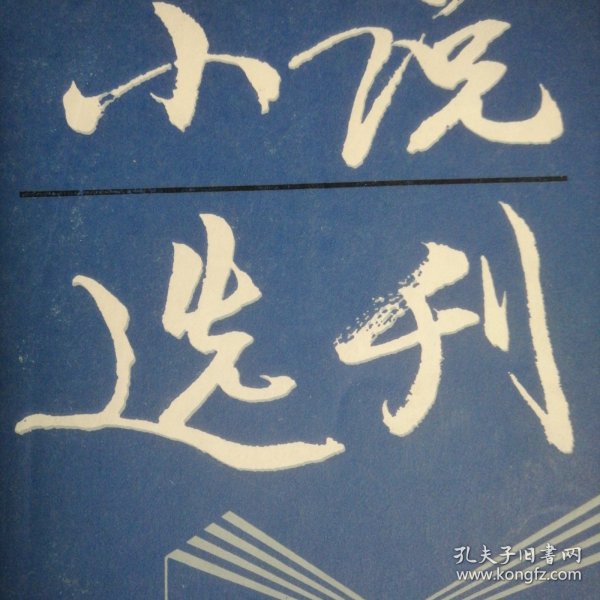 小说
选刊
孔夫子旧書网
www.kongfz.com